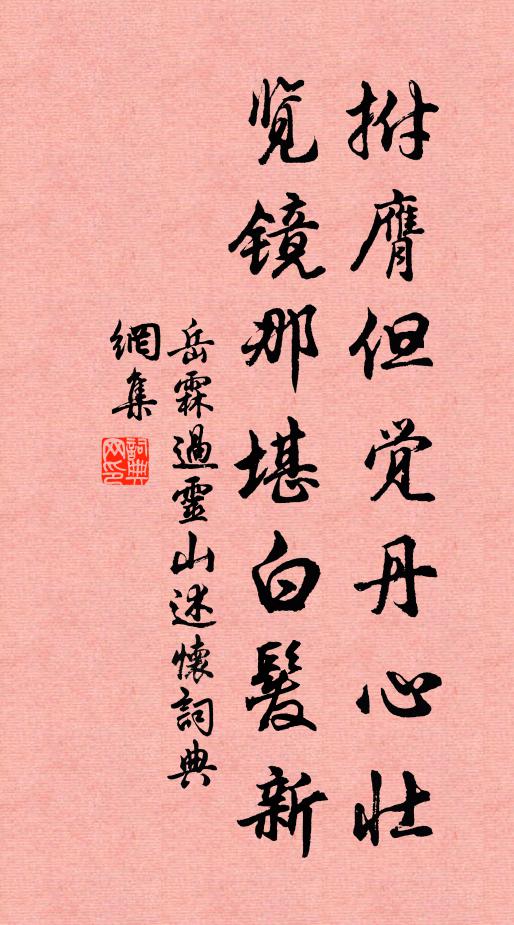 拊膺但觉丹心壮
览镜那堪白髮新
岳霖過靈山述懷詞典
網集
詞典
网印